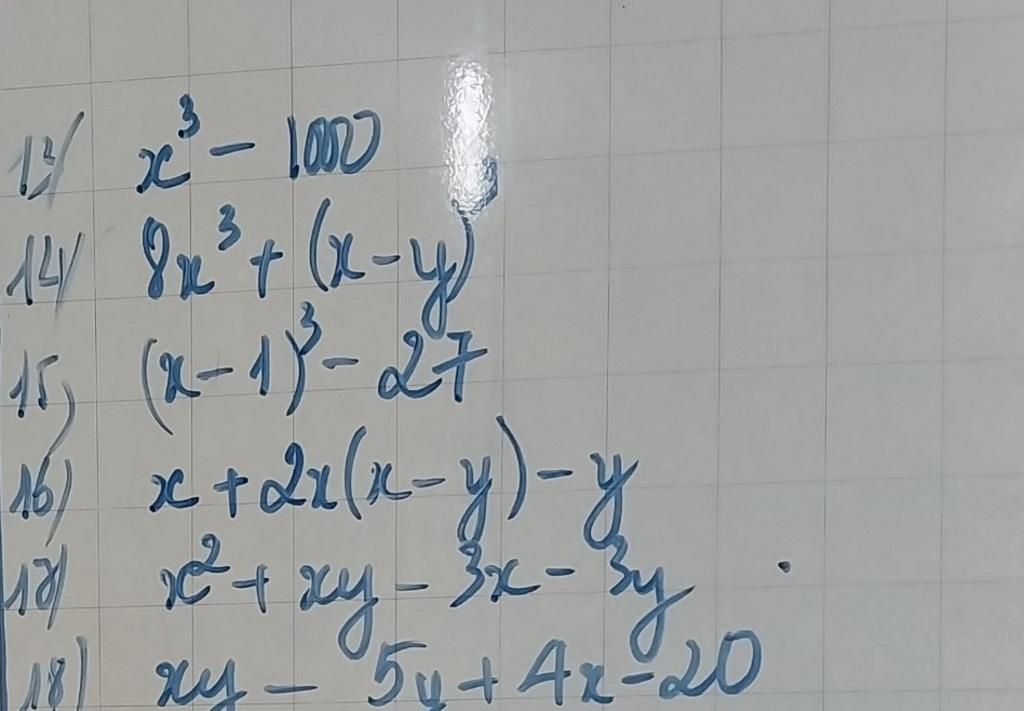 13/ x³ - 1000
14/ 8x³ + (x - y)³
15) (x - 1)³ - 27
16) x + 2x(x - y) - y
17) x² + xy - 3x - 3y
18) xy - 5y + 4x - 20